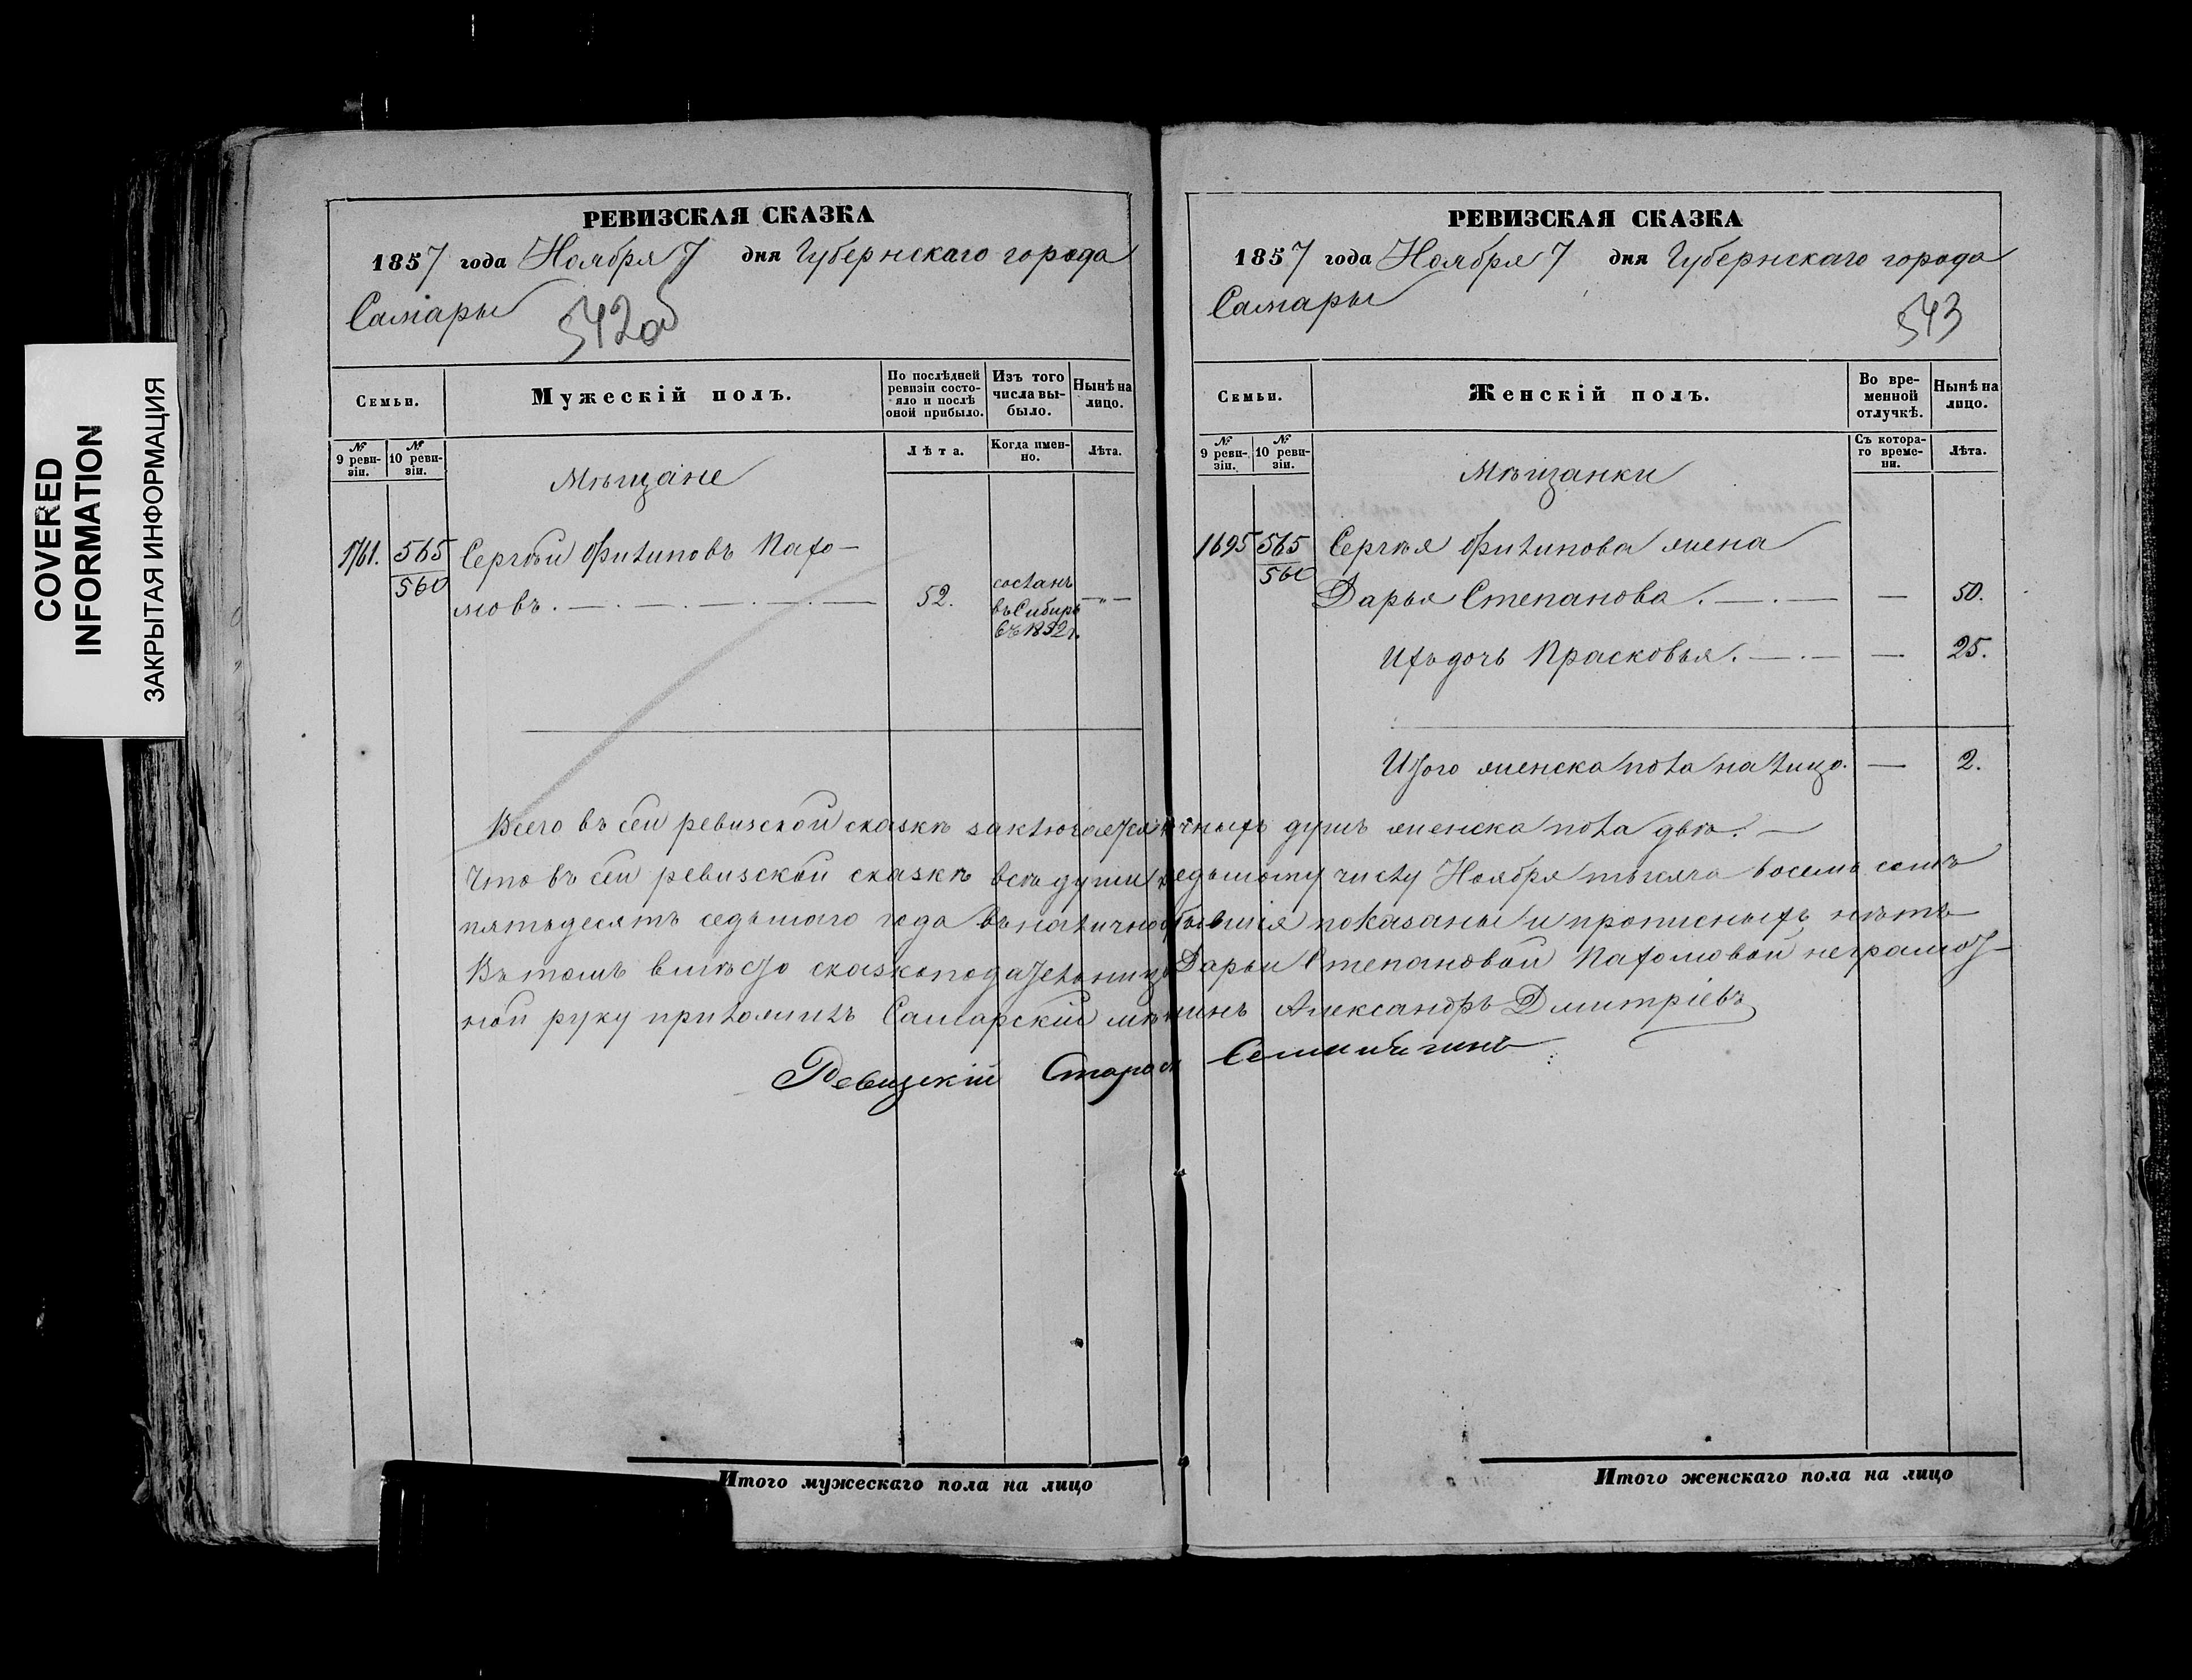 COVERED
INFORMATION
ЗАКРЫТАЯ ИНФОРМАЦИЯ
РЕВИЗСКАЯ СКАЗКА
1857 года Ноября 7 дня Губернскаго города
Самары
542об
Семьи.
Мужескій полъ.
По послѣдней ревизіи состояло и послѣ оной прибыло.
Изъ того числа выбыло.
Нынѣ на лицо.
№ 9 ревизіи.
№ 10 ревизіи.
Лѣта.
Когда именно.
Лѣта.
Мѣщане
1761. 565 Сергѣй Филиповъ Пахо-
560 мовъ. 52. сосланъ въ Сибирь въ 1852 г. —„—
Итого мужескаго пола на лицо
РЕВИЗСКАЯ СКАЗКА
1857 года Ноября 7 дня Губернскаго города
Самары
543
Семьи.
Женскій полъ.
Во временной отлучкѣ.
Нынѣ на лицо.
№ 9 ревизіи.
№ 10 ревизіи.
Съ котораго времени.
Лѣта.
Мѣщанки
1695 565 Сергѣя Филипова жена
560 Дарья Степанова. — 50.
Ихъ дочь Прасковья. — 25.
Итого женска пола на лицо. — 2.
Всего въ сей ревизской сказкѣ заключается чныхъ душъ женска пола двѣ. —
Что въ сей ревизской сказкѣ всѣ души едьмому числу Ноября тысяча восемь сотъ
пятьдесятъ седьмаго года въ налично бывшія показаны и прописныхъ нѣтъ
Въ томъ вмѣсто сказкоподательницы Дарьи Степановой Пахомовой неграмот-
ной руку приложилъ Самарскій мѣ нинъ Александръ Дмитріевъ
Ревизскій Старос
Итого женскаго пола на лицо